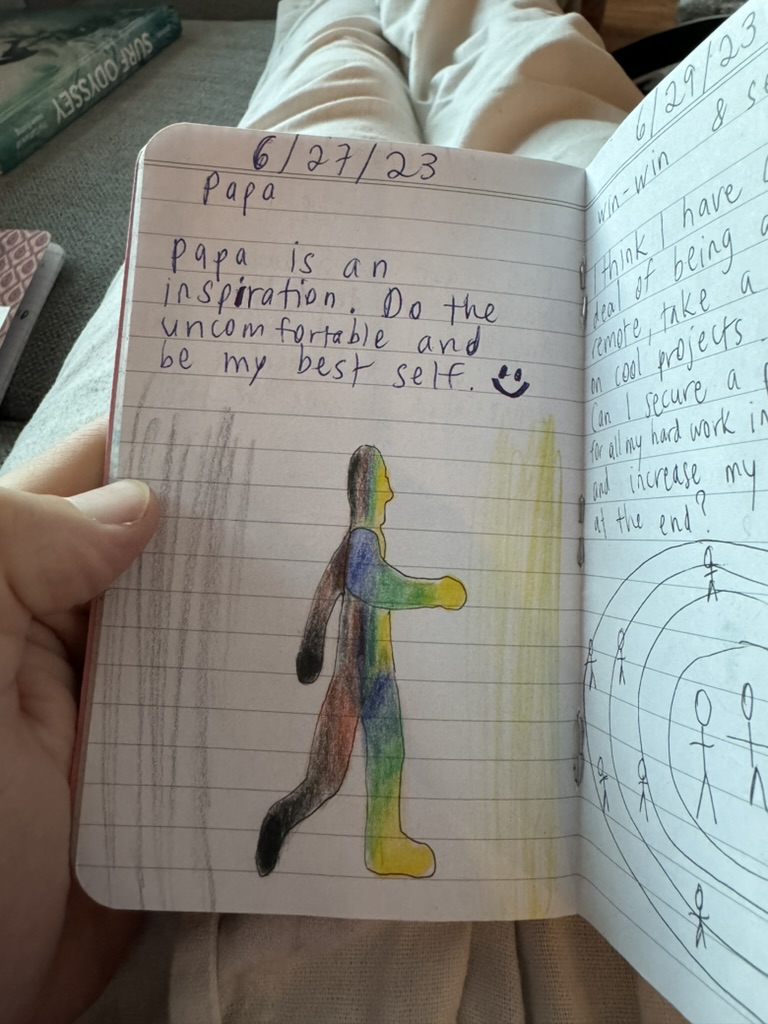 SURF ODYSSEY
6/27/23
Papa
Papa is an
inspiration. Do the
uncomfortable and
be my best self.
6/29/23
win-win &
I think I have
deal of being
remote, take a
on cool projects
Can I secure a
for all my hard work
and increase my
at the end?